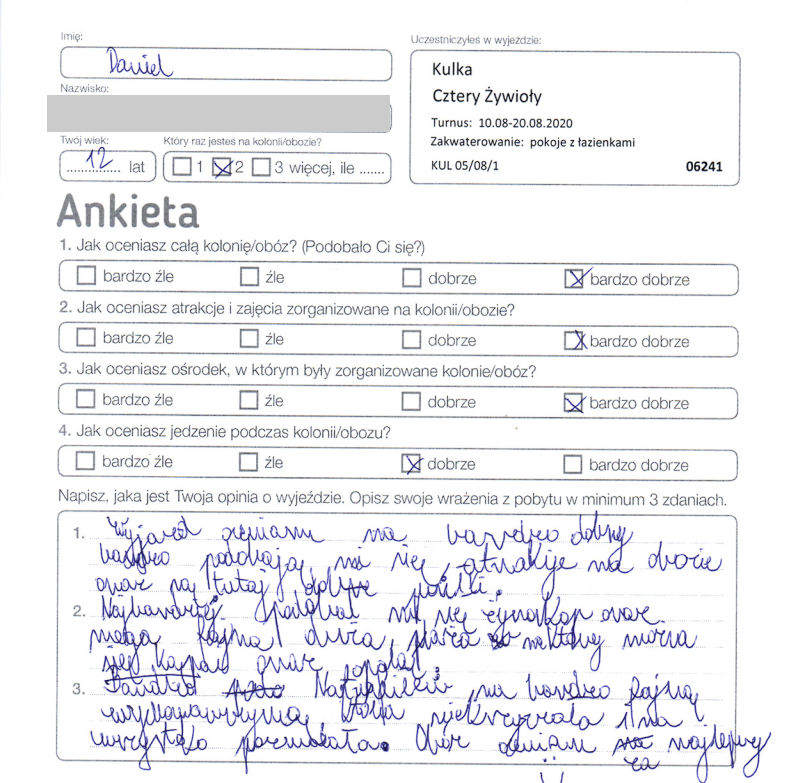 Imię:
Daniel
Nazwisko:
Twój wiek:
12 lat
Który raz jesteś na kolonii/obozie?
1 2 3 więcej, ile .......
Uczestniczyłeś w wyjeździe:
Kulka
Cztery Żywioły
Turnus: 10.08-20.08.2020
Zakwaterowanie: pokoje z łazienkami
KUL 05/08/1 06241
Ankieta
1. Jak oceniasz całą kolonię/obóz? (Podobało Ci się?)
bardzo źle źle dobrze bardzo dobrze
2. Jak oceniasz atrakcje i zajęcia zorganizowane na kolonii/obozie?
bardzo źle źle dobrze bardzo dobrze
3. Jak oceniasz ośrodek, w którym były zorganizowane kolonie/obóz?
bardzo źle źle dobrze bardzo dobrze
4. Jak oceniasz jedzenie podczas kolonii/obozu?
bardzo źle źle dobrze bardzo dobrze
Napisz, jaka jest Twoja opinia o wyjeździe. Opisz swoje wrażenia z pobytu w minimum 3 zdaniach.
1. oceniam na bardzo dobry
bardzo podobają mi się atrakcje na obozie
oraz są tutaj dobre posiłki.
2. mi się oraz
mega fajna duża plaża na której można
się oraz
3. na bardzo fajną
i na
wszystko pozwalała. Obóz oceniam najlepszy
za